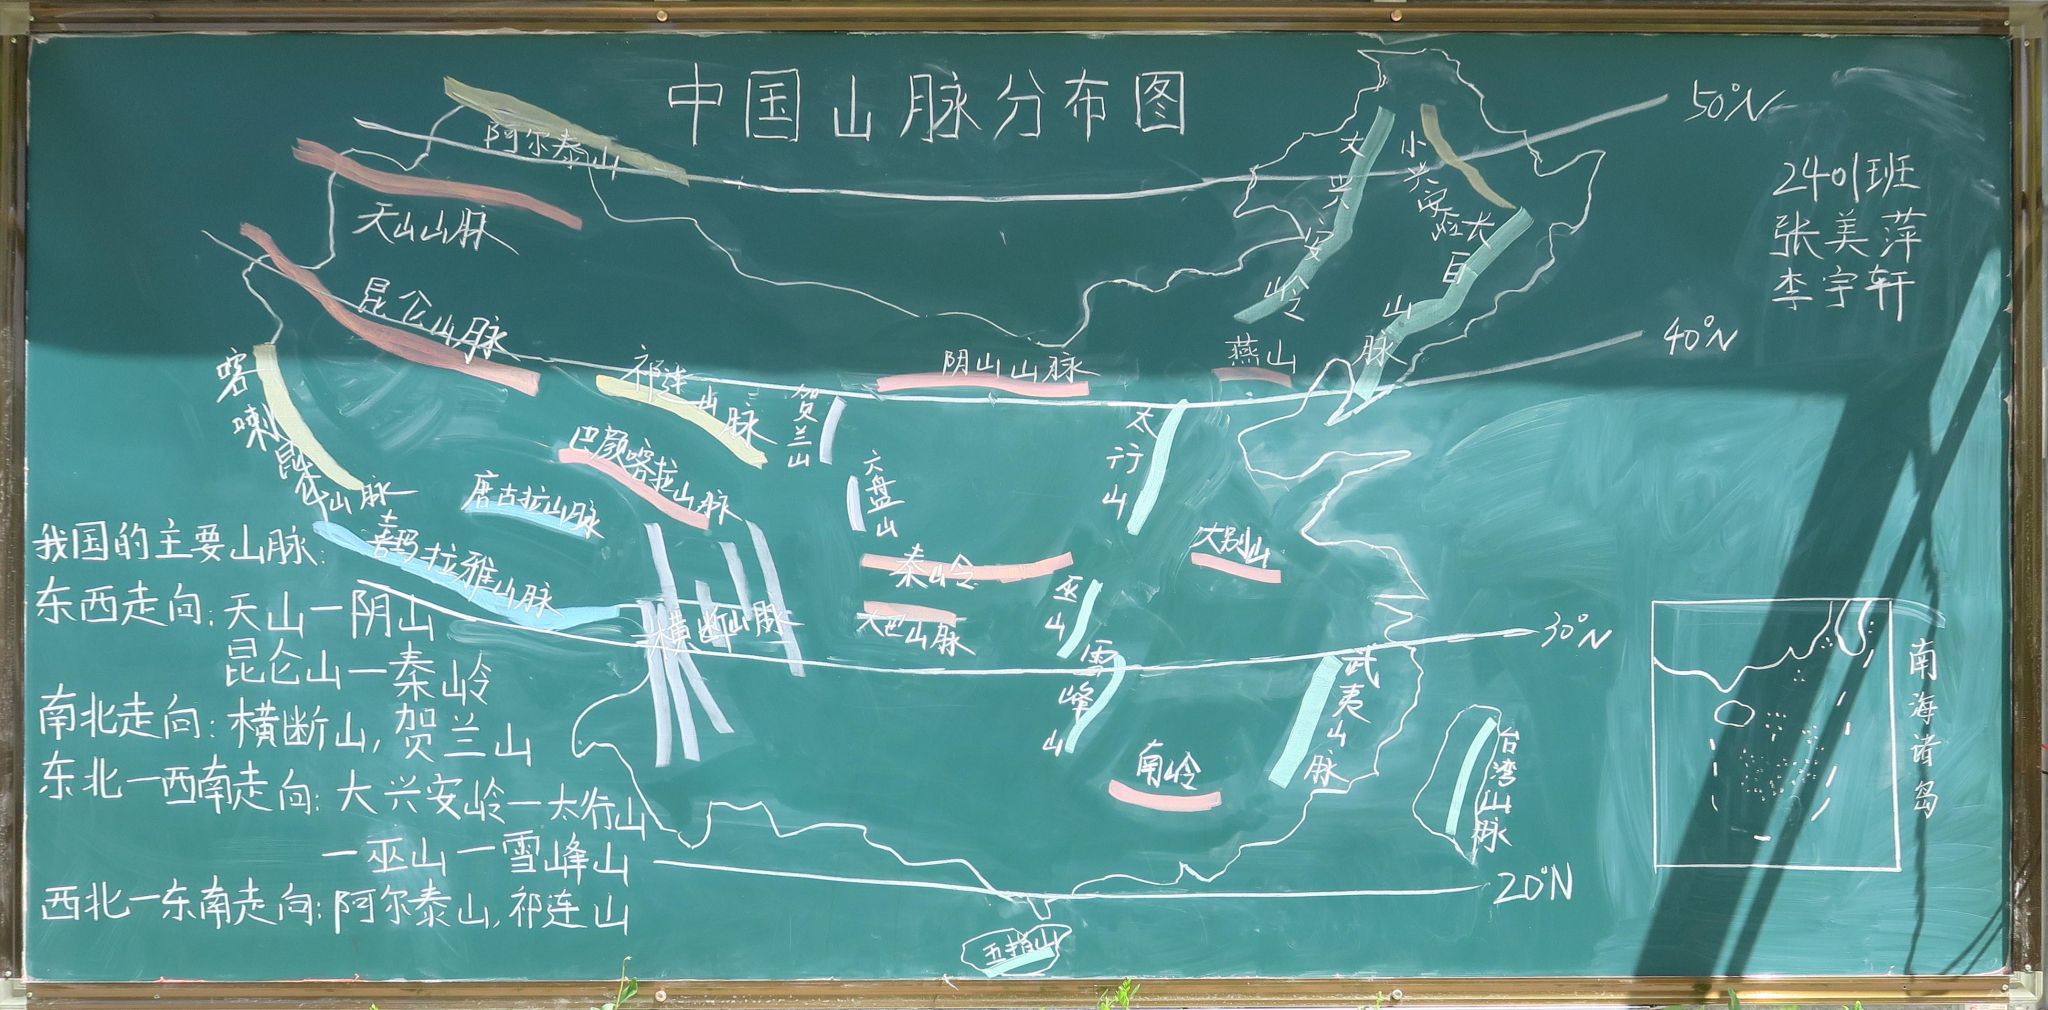 中国山脉分布图
50°N
2401班
张美萍
李宇轩
阿尔泰山
天山山脉
大兴安岭
小兴安岭
长白山脉
昆仑山脉
40°N
喀喇昆仑山脉
祁连山脉
贺兰山
阴山山脉
燕山
太行山
巴颜喀拉山脉
唐古拉山脉
六盘山
秦岭
大别山
喜玛拉雅山脉
横断山脉
大巴山脉
巫山
30°N
雪峰山
武夷山脉
南岭
台湾山脉
南海诸岛
20°N
五指山
我国的主要山脉:
东西走向:天山—阴山
昆仑山—秦岭
南北走向:横断山,贺兰山
东北—西南走向:大兴安岭—太行山
—巫山—雪峰山
西北—东南走向:阿尔泰山,祁连山